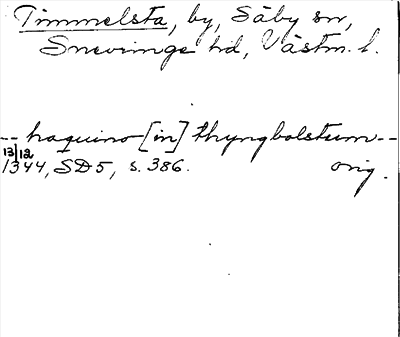 Timmelsta, by, Säby sn,
Snevringe hd, Västm. l.
-- haquino [in] thyngbolstum --
13/12
1344, SD5, s. 386. orig.